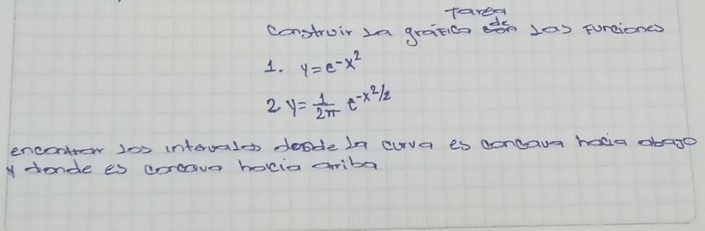 Tarea
Construir la gráfica de las Funciones
1. y = e^-x^2
2 y = 1/2π e^-x^2/2
encontrar los intervalos donde la curva es concava hacia abajo
y donde es concava hacia arriba